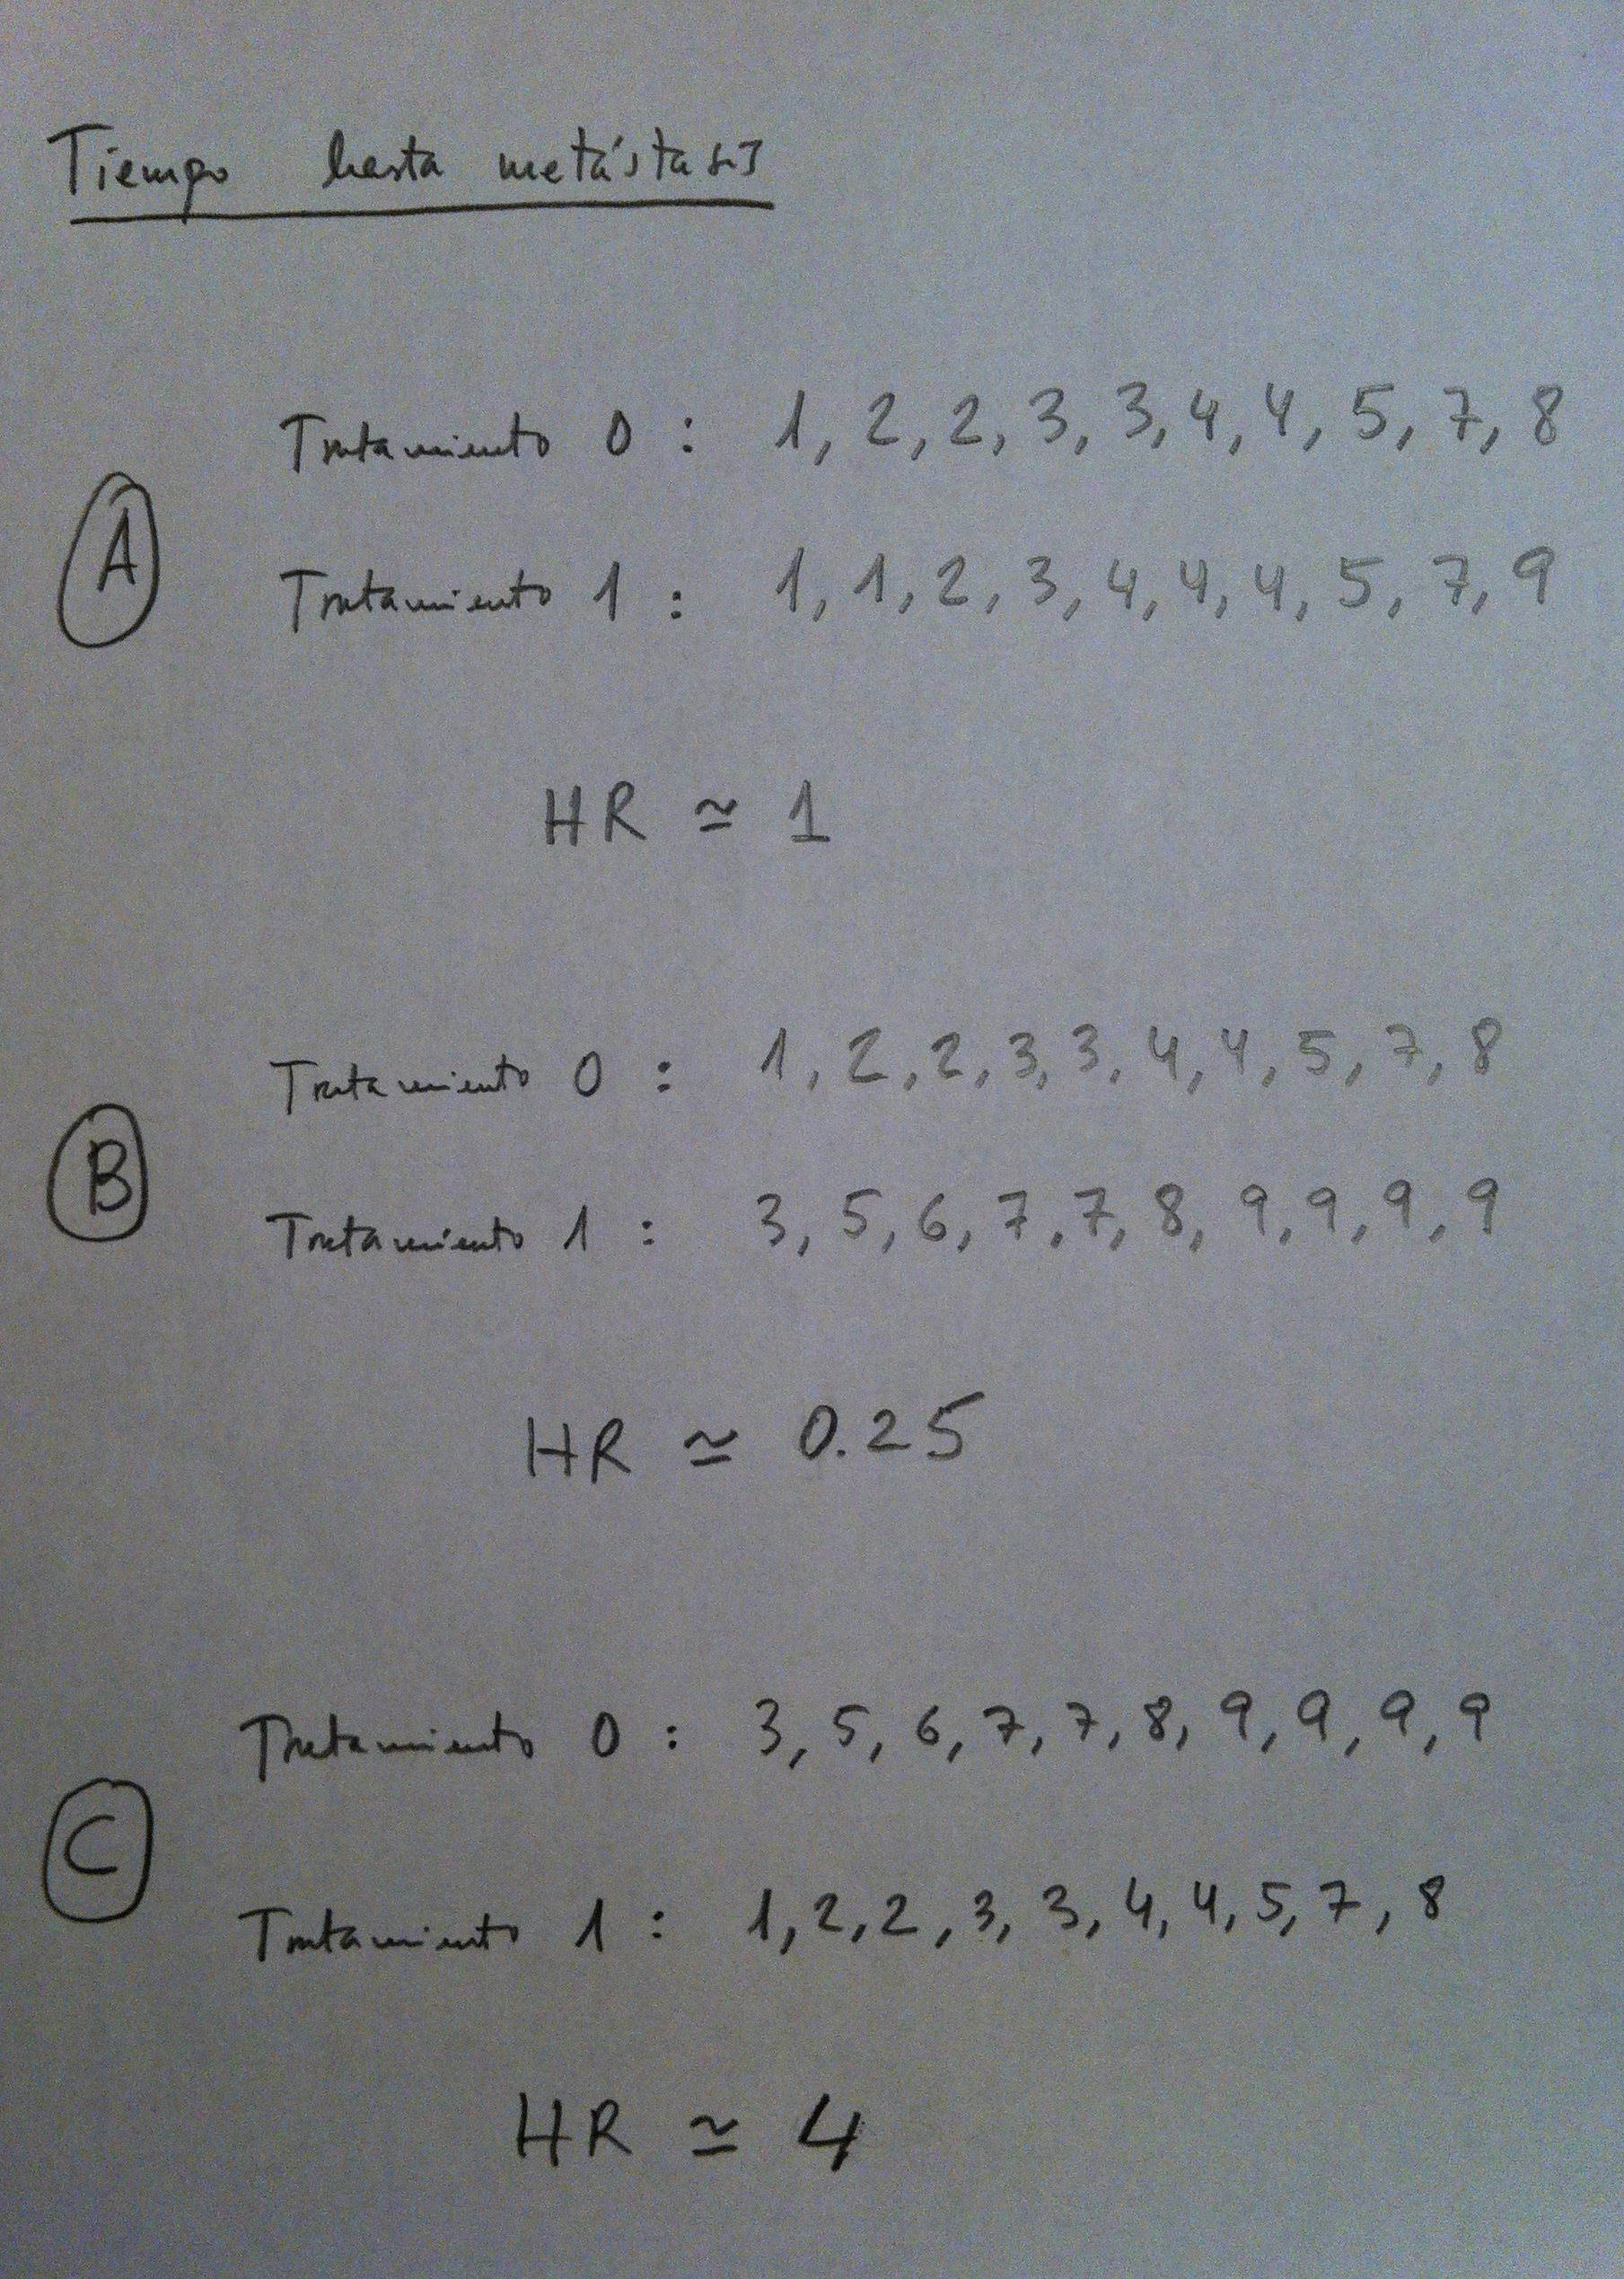 Tiempo hasta metástasis
Tratamiento 0 : 1, 2, 2, 3, 3, 4, 4, 5, 7, 8
A
Tratamiento 1 : 1, 1, 2, 3, 4, 4, 4, 5, 7, 9
HR ≃ 1
Tratamiento 0 : 1, 2, 2, 3, 3, 4, 4, 5, 7, 8
B
Tratamiento 1 : 3, 5, 6, 7, 7, 8, 9, 9, 9, 9
HR ≃ 0.25
Tratamiento 0 : 3, 5, 6, 7, 7, 8, 9, 9, 9, 9
C
Tratamiento 1 : 1, 2, 2, 3, 3, 4, 4, 5, 7, 8
HR ≃ 4